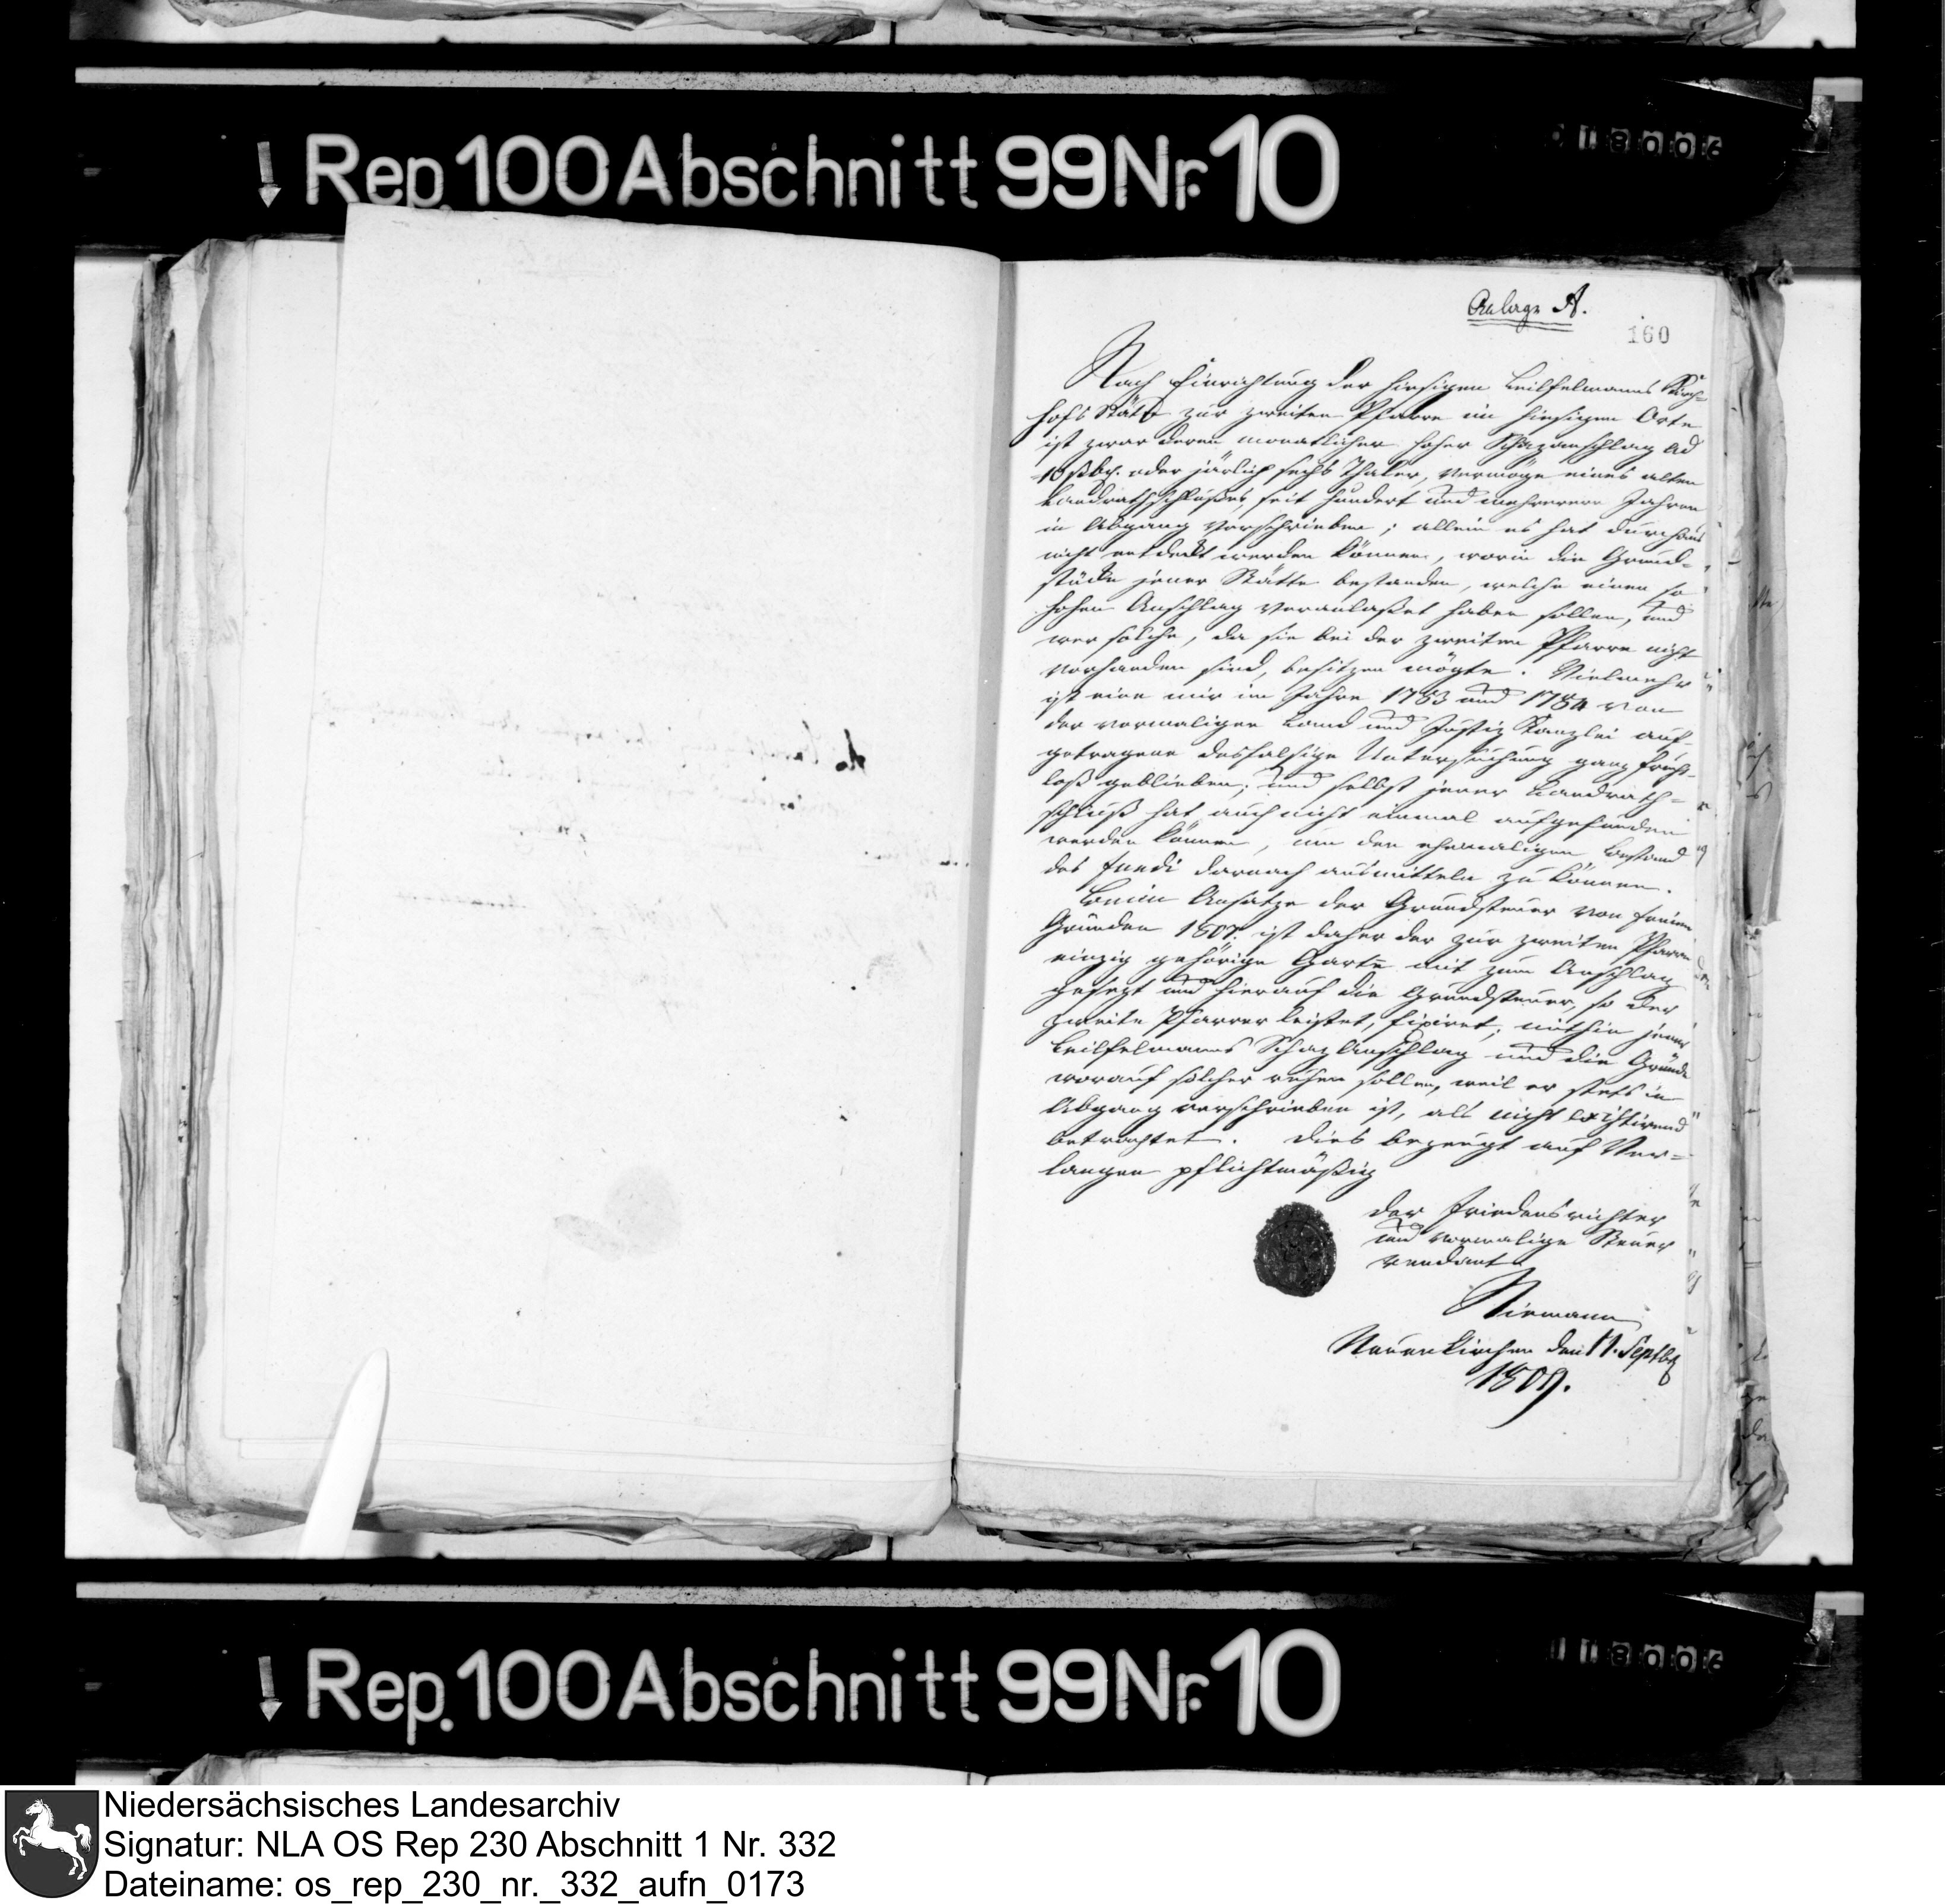 Rep. 100 Abschnitt 99 Nr. 10
Anlage A.
160
Nach Einrichtung der hiesigen Beilfelmanns Kirch=
hofs Stätte zur zweiten Pfarre im hiesigen Orte
ist zwar deren monatlicher hoher Schazanschlag ad
10 ßbr. oder järlich sechs Thaler, vermöge eines alten
Landrathsschlußes, seit hundert und mehreren Jahren
in Abgang verschrieben; allein es hat durchaus
nicht entdekt werden können, worin die Grund=
stücke jener Stätte bestanden, welche einen so
hohen Anschlag veranlaßet haben sollen, und
wer solche, da sie bei der zweiten Pfarre nicht
vorhanden sind, besitzen mögte. Vielmehr
ist eine mir im Jahre 1783 und 1784 von
der vormaligen Land und Justiz Kanzlei auf=
getragene desfalsige Untersuchung ganz frucht=
loß geblieben; und selbst jener Landrath=
schluß hat auch nicht einmal aufgefunden
werden können, um den ehemaligen Bestand
des fundi darnach ausmitteln zu können.
Beim Ansatze der Grundsteuer von freien
Gründen 1807. ist daher der zur zweiten Pfarre
einzig gehörige Garte mit zum Anschlag
gesezt und hierauf die Grundsteuer, so der
zweite Pfarrer leistet, fixiret, mithin jener
Beilfelmanns Schaz Anschlag und die Gründe
worauf solcher ruhen sollen, weil er stets in
Abgang verschrieben ist, als nicht existirend
betrachtet. Dies bezeugt auf Ver=
langen pflichtmäßig
der Friedensrichter
und vormalige Steuer
rendant
Niemann
Neuenkirchen den 11. Septbr
1809.
Rep. 100 Abschnitt 99 Nr. 10
Niedersächsisches Landesarchiv
Signatur: NLA OS Rep 230 Abschnitt 1 Nr. 332
Dateiname: os_rep_230_nr._332_aufn_0173